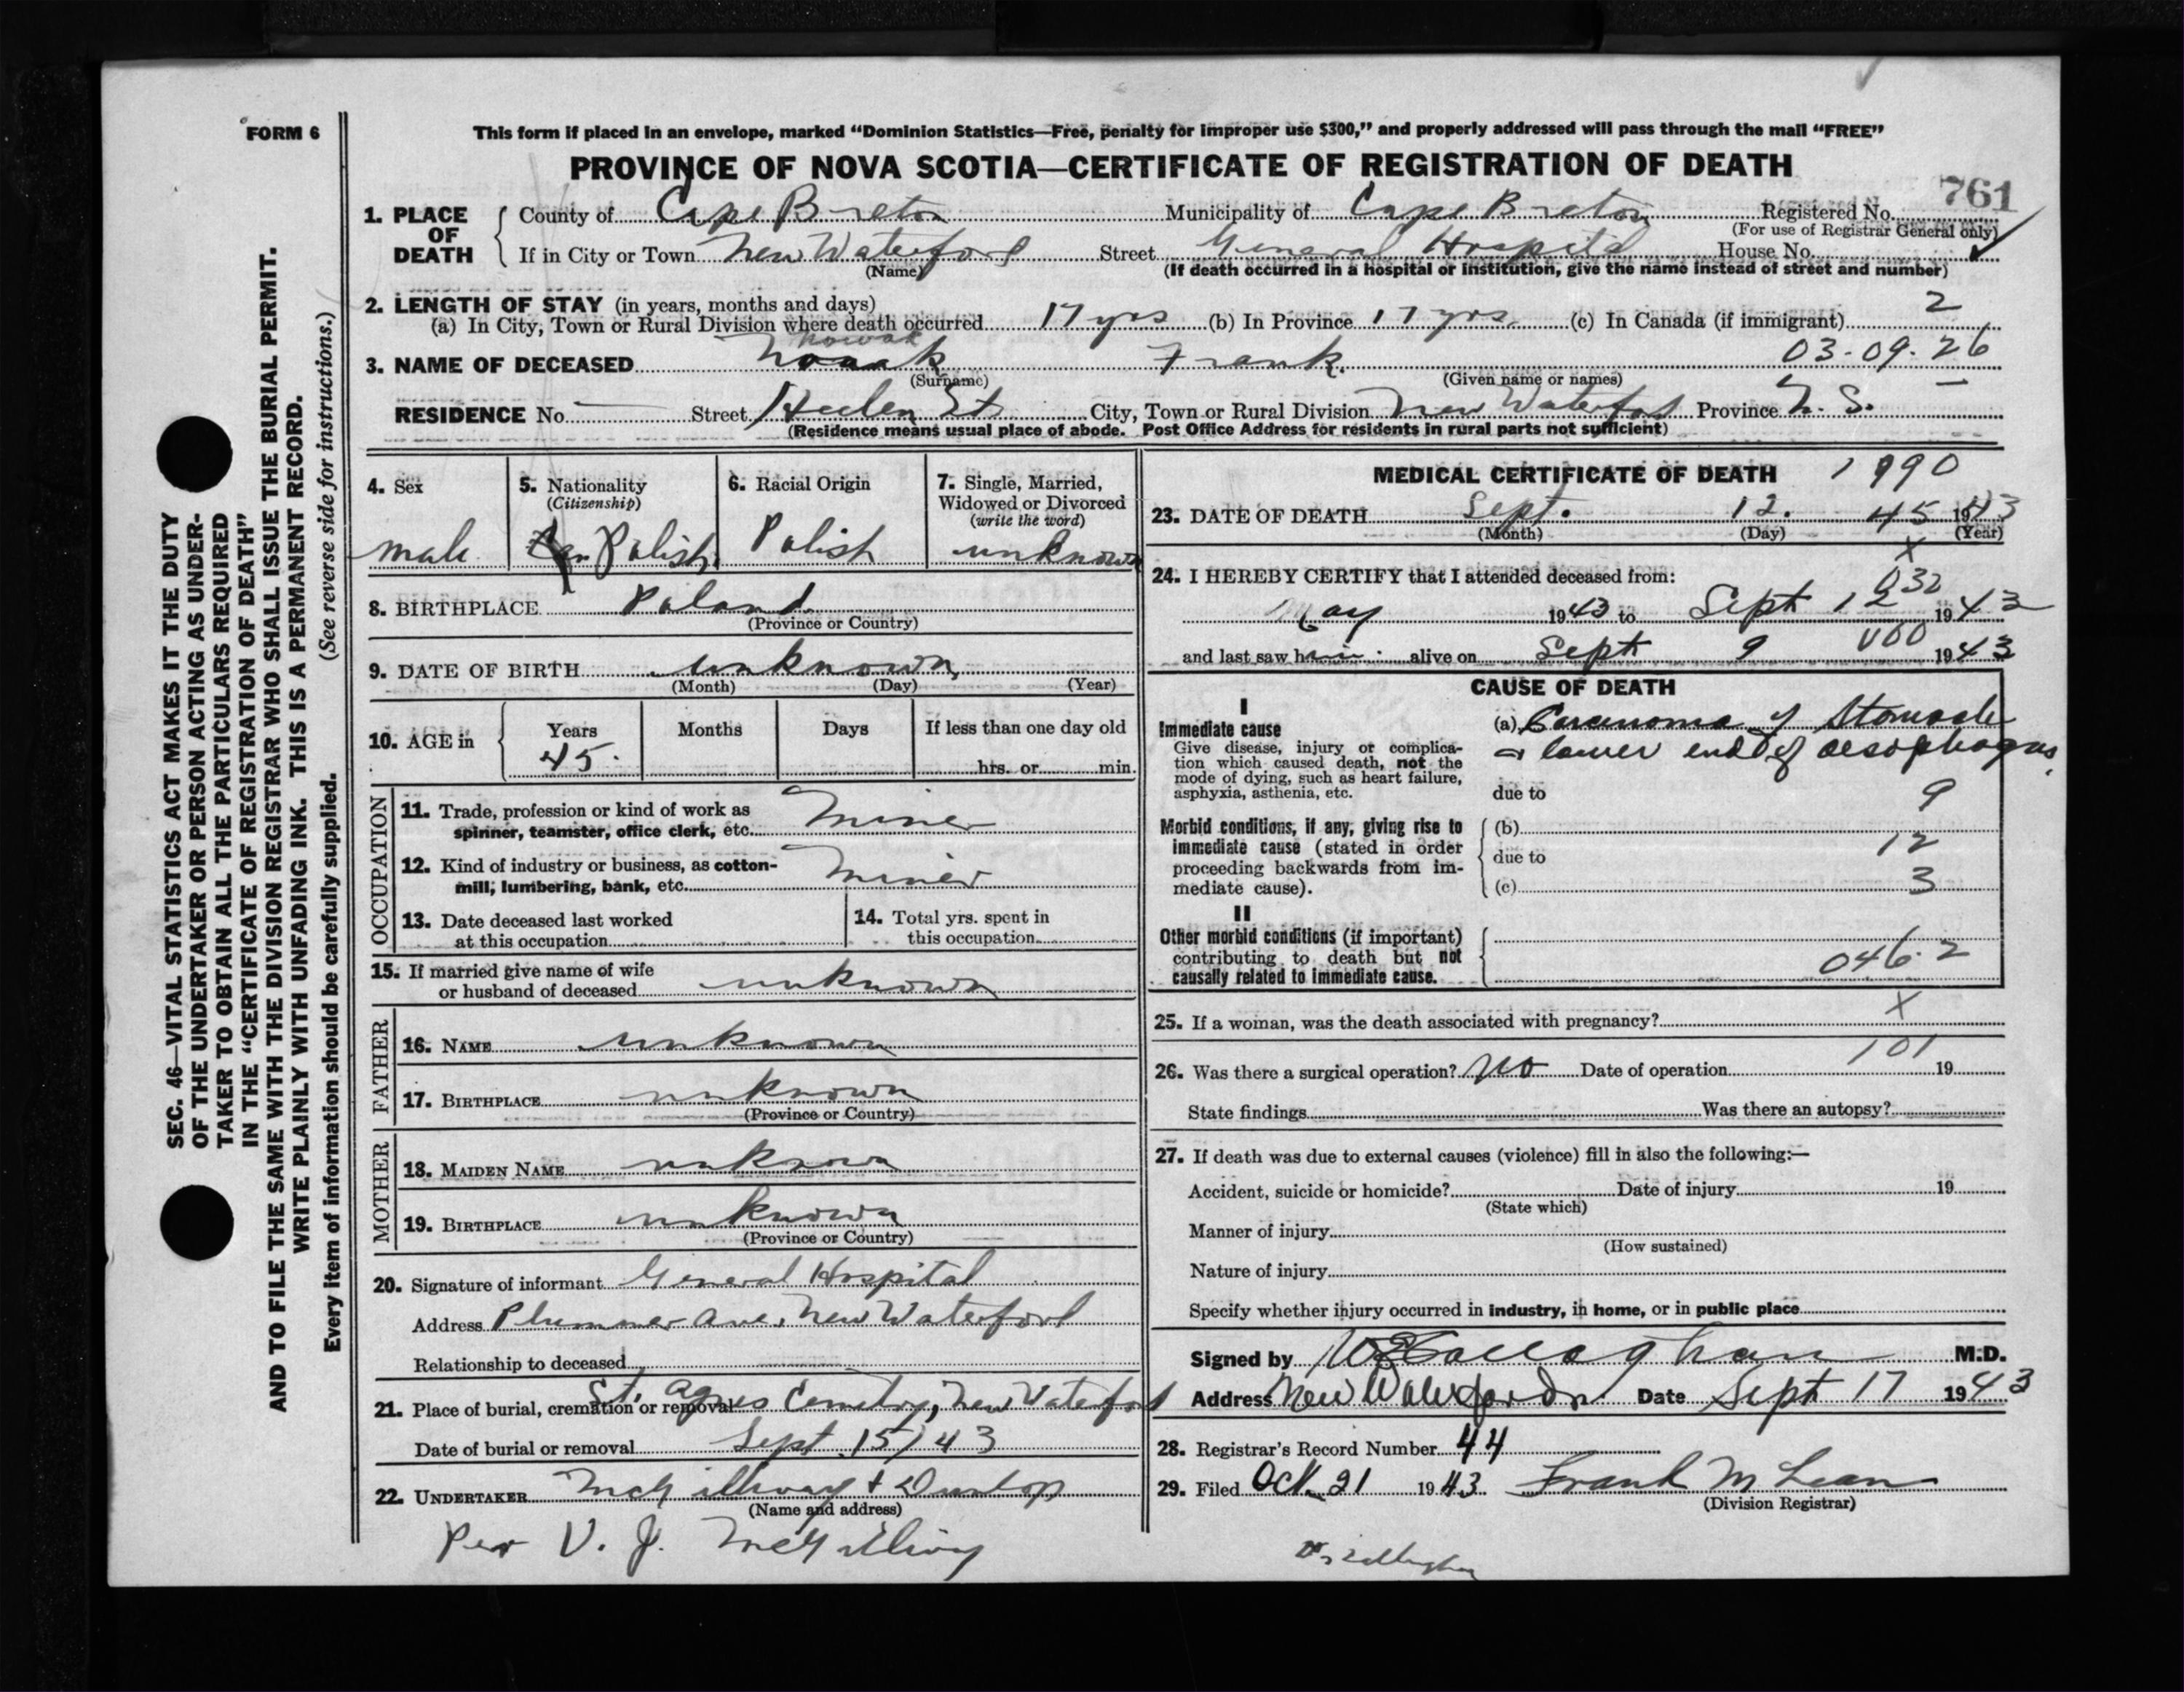 FORM 6
This form if placed in an envelope, marked “Dominion Statistics—Free, penalty for improper use $300,” and properly addressed will pass through the mail “FREE”
PROVINCE OF NOVA SCOTIA—CERTIFICATE OF REGISTRATION OF DEATH
761
1. PLACE OF DEATH { County of Cape Breton Municipality of Cape Breton Registered No.
(For use of Registrar General only)
If in City or Town New Waterford Street General Hospital House No.
(Name) (If death occurred in a hospital or institution, give the name instead of street and number)
2. LENGTH OF STAY (in years, months and days) 2
(a) In City, Town or Rural Division where death occurred 17 yrs (b) In Province 17 yrs. (c) In Canada (if immigrant)
Nowak
3. NAME OF DECEASED Frank. 03-09-26
(Surname) (Given name or names)
RESIDENCE No. — Street City, Town or Rural Division New Waterford Province N. S.
(Residence means usual place of abode. Post Office Address for residents in rural parts not sufficient)
4. Sex
male
5. Nationality
(Citizenship)
Polish
6. Racial Origin
Polish
7. Single, Married, Widowed or Divorced
(write the word)
unknown
8. BIRTHPLACE Poland
(Province or Country)
9. DATE OF BIRTH unknown
(Month) (Day) (Year)
10. AGE in { Years Months Days If less than one day old
45. hrs. or min.
OCCUPATION
11. Trade, profession or kind of work as
spinner, teamster, office clerk, etc. Miner
12. Kind of industry or business, as cotton-
mill, lumbering, bank, etc. Miner
13. Date deceased last worked
at this occupation
14. Total yrs. spent in
this occupation
15. If married give name of wife
or husband of deceased unknown
FATHER
16. NAME unknown
17. BIRTHPLACE unknown
(Province or Country)
MOTHER
18. MAIDEN NAME unknown
19. BIRTHPLACE unknown
(Province or Country)
20. Signature of informant General Hospital
Address Plummer Ave. New Waterford
Relationship to deceased
21. Place of burial, cremation or removal St. Agnes Cemetry, New Waterford
Date of burial or removal Sept 15/43
22. UNDERTAKER McGillivray + Dunlop
(Name and address)
Per V. J. McGillivray
MEDICAL CERTIFICATE OF DEATH 1990
23. DATE OF DEATH Sept. 12. 45 1943
(Month) (Day) (Year)
x
24. I HEREBY CERTIFY that I attended deceased from:
032
May 1943 to Sept 12 1943
and last saw him alive on Sept 9 1943
CAUSE OF DEATH
I
Immediate cause
Give disease, injury or complica-
tion which caused death, not the
mode of dying, such as heart failure,
asphyxia, asthenia, etc.
(a) Carcinoma of Stomach
lower end of oesophagus
due to 9
Morbid conditions, if any, giving rise to
immediate cause (stated in order
proceeding backwards from im-
mediate cause).
(b)
due to 12
(c) 3
II
Other morbid conditions (if important)
contributing to death but not
causally related to immediate cause.
046.2
x
25. If a woman, was the death associated with pregnancy?
101
26. Was there a surgical operation? No Date of operation 19
State findings Was there an autopsy?
27. If death was due to external causes (violence) fill in also the following:—
Accident, suicide or homicide? Date of injury 19
(State which)
Manner of injury
(How sustained)
Nature of injury
Specify whether injury occurred in industry, in home, or in public place
Signed by Callaghan M.D.
Address New Waterford Date Sept 17 1943
28. Registrar's Record Number 44
29. Filed Oct. 21 1943. Frank McLean
(Division Registrar)
SEC. 46—VITAL STATISTICS ACT MAKES IT THE DUTY
OF THE UNDERTAKER OR PERSON ACTING AS UNDER-
TAKER TO OBTAIN ALL THE PARTICULARS REQUIRED
IN THE “CERTIFICATE OF REGISTRATION OF DEATH”
AND TO FILE THE SAME WITH THE DIVISION REGISTRAR WHO SHALL ISSUE THE BURIAL PERMIT.
WRITE PLAINLY WITH UNFADING INK. THIS IS A PERMANENT RECORD.
(See reverse side for instructions.)
Every item of information should be carefully supplied.